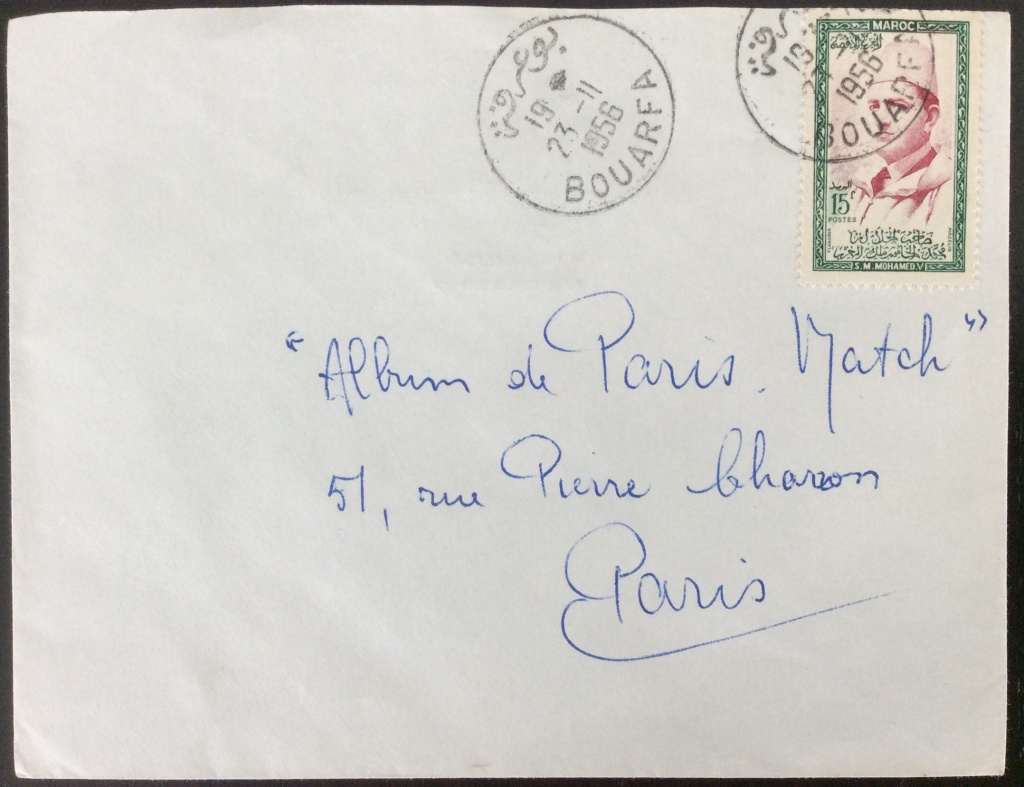 بوعرفة
19
23 -11
1956
BOUARFA
19
1956
BOUARFA
MAROC
المملكة المغربية
البريد
15
POSTES
صاحب الجلالة
محمد الخامس ملك المغرب
S.M. MOHAMED.V
" Album de Paris. Match "
51, rue Pierre Charon
Paris